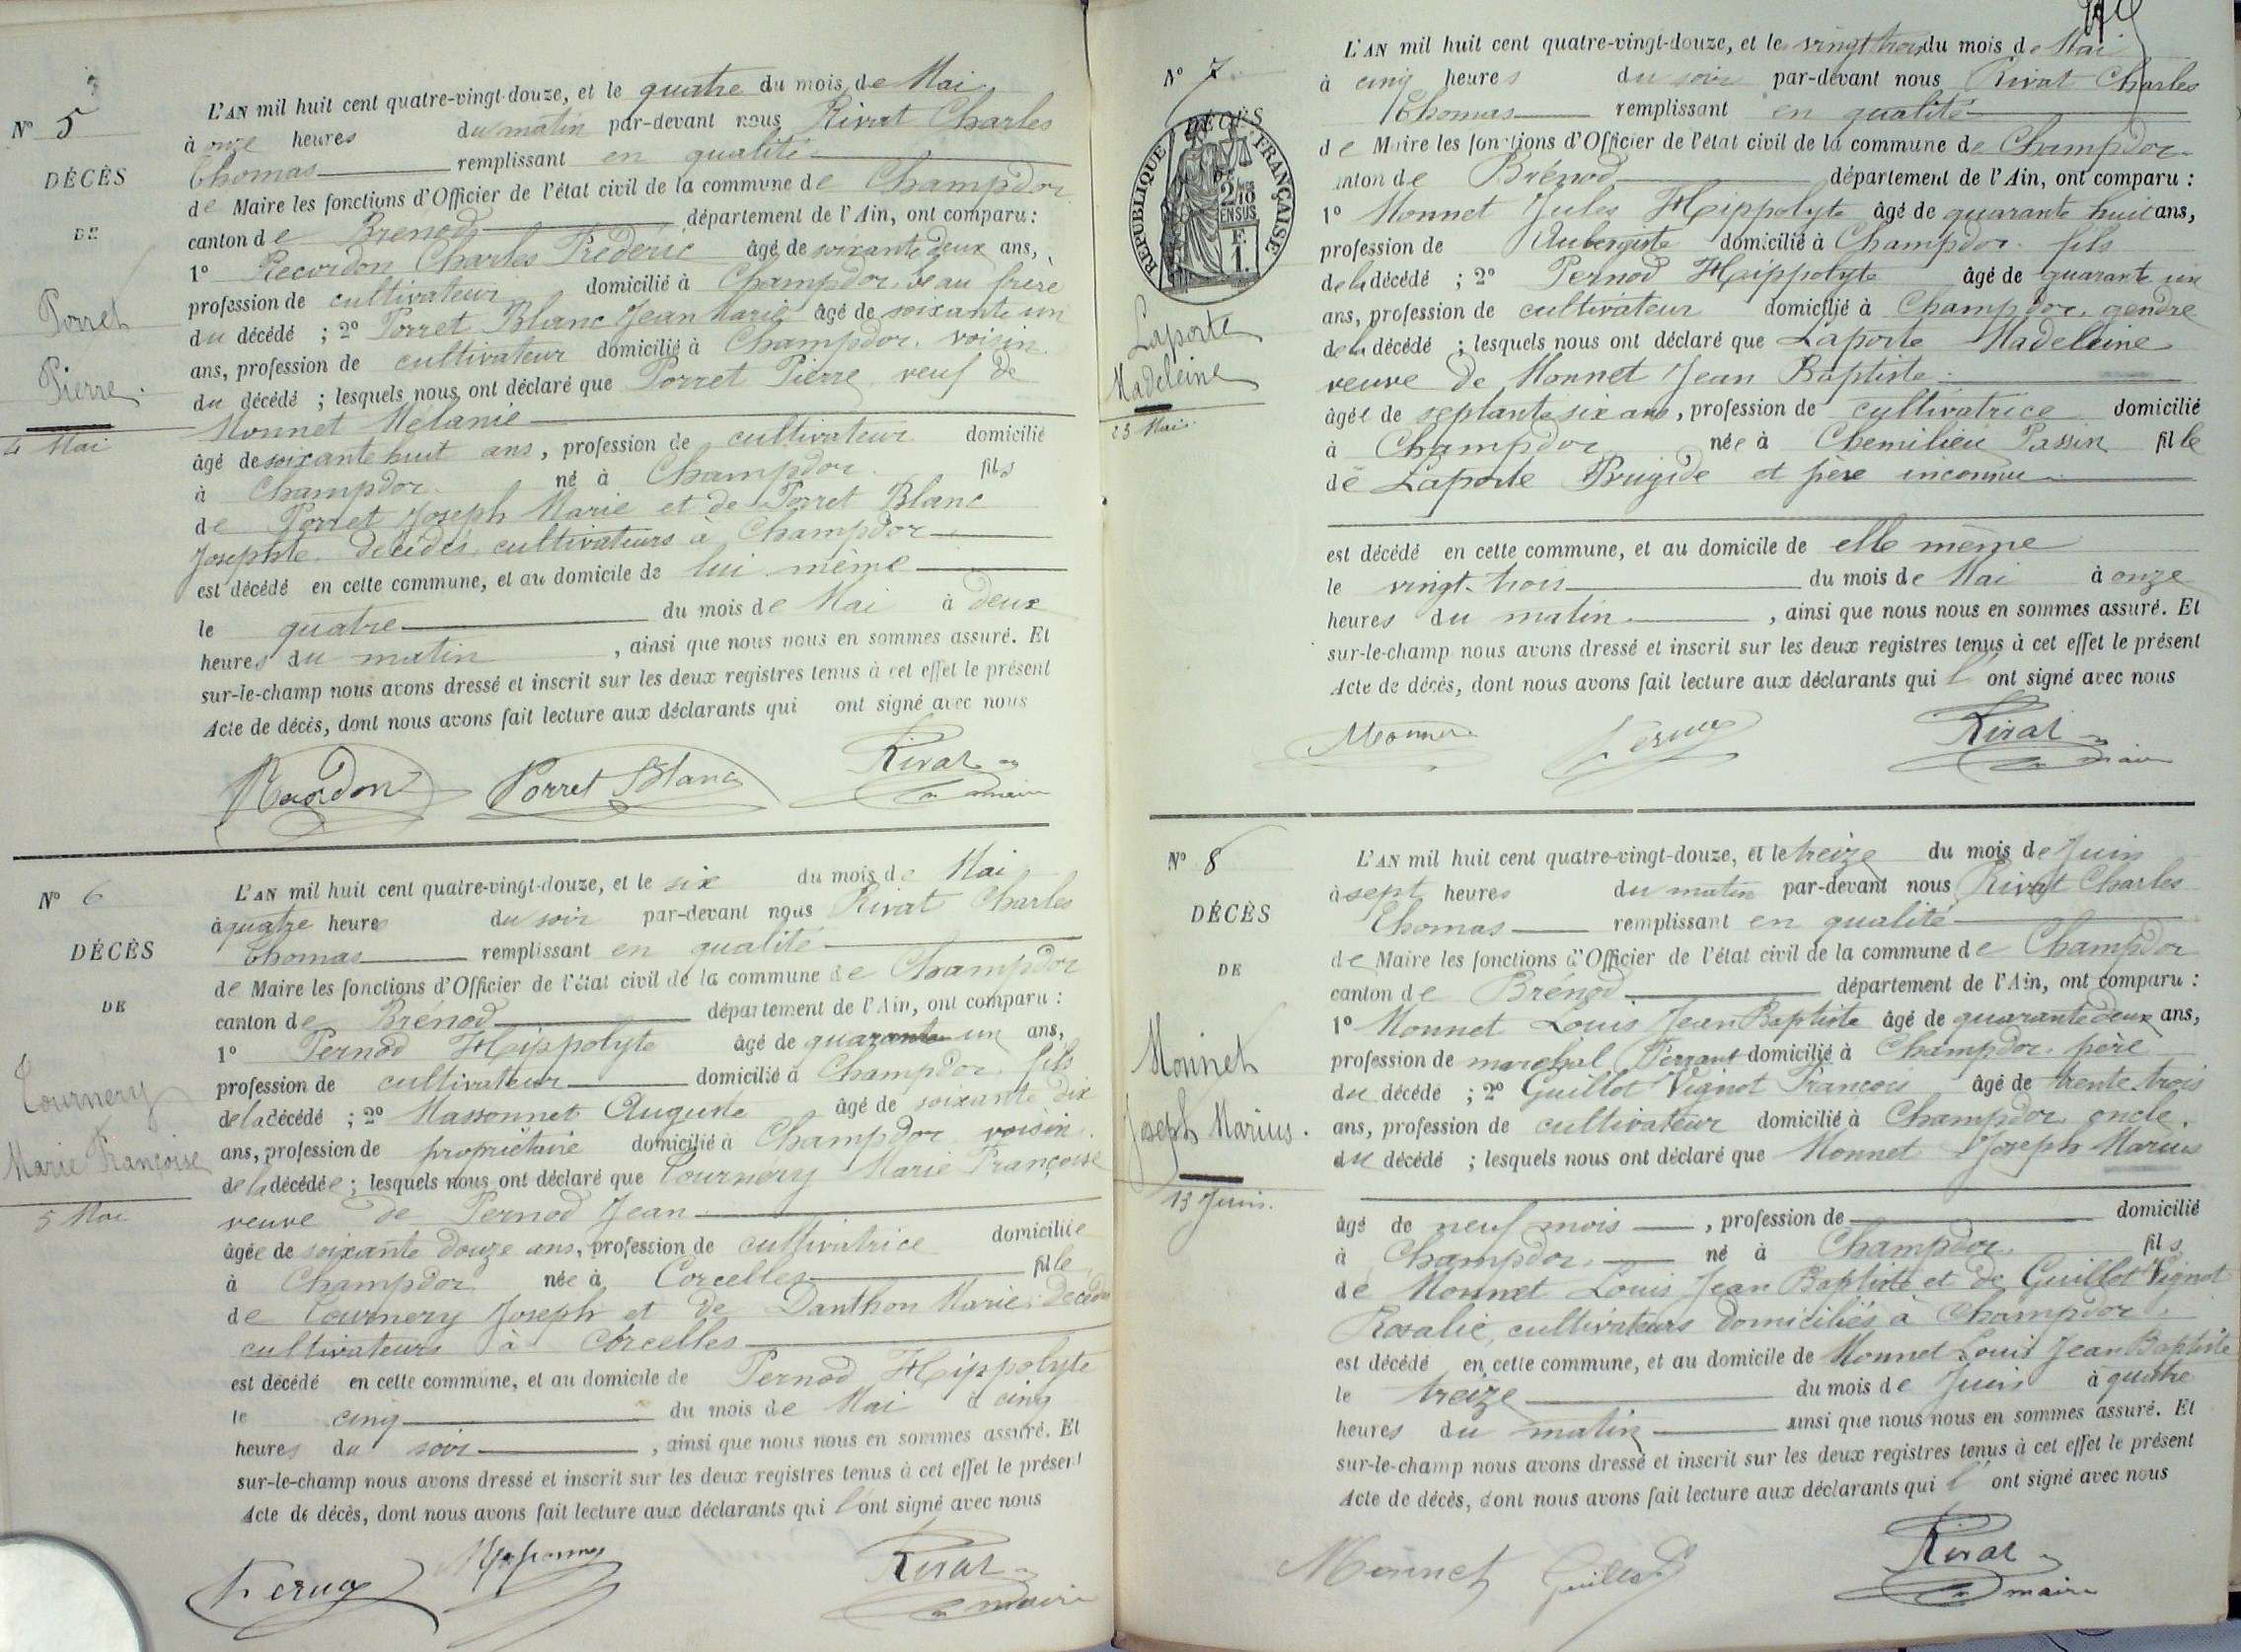 N° 5
DÉCÈS
DE
Porret
Pierre.
4 Mai
L'AN mil huit cent quatre-vingt-douze, et le quatre du mois de Mai
à onze heures du matin par-devant nous Rivat Charles
Thomas remplissant en qualité
de Maire les fonctions d'Officier de l'état civil de la commune de Champdor
canton de Brénod département de l'Ain, ont comparu :
1° Recordon Charles Fréderic âgé de soixante deux ans,
profession de cultivateur domicilié à Champdor, beau frère
du décédé ; 2° Porret Blanc Jean Marie âgé de soixante un
ans, profession de cultivateur domicilié à Champdor. voisin
du décédé ; lesquels nous ont déclaré que Porret Pierre, veuf de
Monnet Mélanie
âgé de soixante huit ans, profession de cultivateur domicilié
à Champdor. né à Champdor. fils
de Porret Joseph Marie et de Porret Blanc
Josephte. décédés, cultivateurs à Champdor
est décédé en cette commune, et au domicile de lui même
le quatre du mois de Mai à deux
heures du matin, ainsi que nous nous en sommes assuré. Et
sur-le-champ nous avons dressé et inscrit sur les deux registres tenus à cet effet le présent
Acte de décès, dont nous avons fait lecture aux déclarants qui ont signé avec nous
Recordon Porret Blanc Rivat
maire
N° 6
DÉCÈS
DE
Tournery
Marie Françoise
5 Mai
L'AN mil huit cent quatre-vingt-douze, et le six du mois de Mai
à quatre heures du soir par-devant nous Rivat Charles
Thomas remplissant en qualité
de Maire les fonctions d'Officier de l'état civil de la commune de Champdor
canton de Brénod département de l'Ain, ont comparu :
1° Pernod Hippolyte âgé de quarante un ans,
profession de cultivateur domicilié à Champdor, fils
de la décédé ; 2° Massonnet Auguste âgé de soixante dix
ans, profession de propriétaire domicilié à Champdor voisin.
de la décédée ; lesquels nous ont déclaré que Tournery Marie Françoise
veuve de Pernod Jean
âgée de soixante douze ans, profession de cultivatrice domiciliée
à Champdor née à Corcelles fille
de Tournery Joseph et de Danthon Marie, décédés
cultivateurs à Corcelles
est décédé en cette commune, et au domicile de Pernod Hippolyte
le cinq du mois de Mai à cinq
heures du soir, ainsi que nous nous en sommes assuré. Et
sur-le-champ nous avons dressé et inscrit sur les deux registres tenus à cet effet le présent
Acte de décès, dont nous avons fait lecture aux déclarants qui l'ont signé avec nous
Rivat
maire
N° 7
RÉPUBLIQUE FRANÇAISE
Laporte
Madeleine
23 Mai.
L'AN mil huit cent quatre-vingt-douze, et le vingt trois du mois de Mai
à cinq heures du soir par-devant nous Rivat Charles
Thomas remplissant en qualité
de Maire les fonctions d'Officier de l'état civil de la commune de Champdor
anton de Brénod département de l'Ain, ont comparu :
1° Monnet Jules Hippolyte âgé de quarante huit ans,
profession de Aubergiste domicilié à Champdor. fils
de la décédé ; 2° Pernod Hippolyte âgé de quarante un
ans, profession de cultivateur domicilié à Champdor. gendre
de la décédé ; lesquels nous ont déclaré que Laporte Madeleine
veuve de Monnet Jean Baptiste
âgée de septante six ans, profession de cultivatrice domicilié
à Champdor née à Chemilieu Passin fille
de Laporte Brigide et père inconnu
est décédé en cette commune, et au domicile de elle même
le vingt-trois du mois de Mai à onze
heures du matin, ainsi que nous nous en sommes assuré. Et
sur-le-champ nous avons dressé et inscrit sur les deux registres tenus à cet effet le présent
Acte de décès, dont nous avons fait lecture aux déclarants qui l'ont signé avec nous
Monnet Rivat
maire
N° 8
DÉCÈS
DE
Monnet
Joseph Marius.
13 Juin.
L'AN mil huit cent quatre-vingt-douze, et le treize du mois de Juin
à sept heures du matin par-devant nous Rivat Charles
Thomas remplissant en qualité
de Maire les fonctions d'Officier de l'état civil de la commune de Champdor
canton de Brénod département de l'Ain, ont comparu :
1° Monnet Louis Jean Baptiste âgé de quarante deux ans,
profession de marechal Ferrant domicilié à Champdor. père
du décédé ; 2° Guillot Vignot François âgé de trente trois
ans, profession de cultivateur domicilié à Champdor oncle.
du décédé ; lesquels nous ont déclaré que Monnet Joseph Marius
âgé de neuf mois, profession de domicilié
à Champdor, né à Champdor. fils
de Monnet Louis Jean Baptiste et de Guillot Vignot
Rosalie, cultivateurs domiciliés à Champdor.
est décédé en cette commune, et au domicile de Monnet Louis Jean Baptiste
le treize du mois de Juin à quatre
heures du matin ainsi que nous nous en sommes assuré. Et
sur-le-champ nous avons dressé et inscrit sur les deux registres tenus à cet effet le présent
Acte de décès, dont nous avons fait lecture aux déclarants qui l'ont signé avec nous
Monnet Guillot Rivat
maire